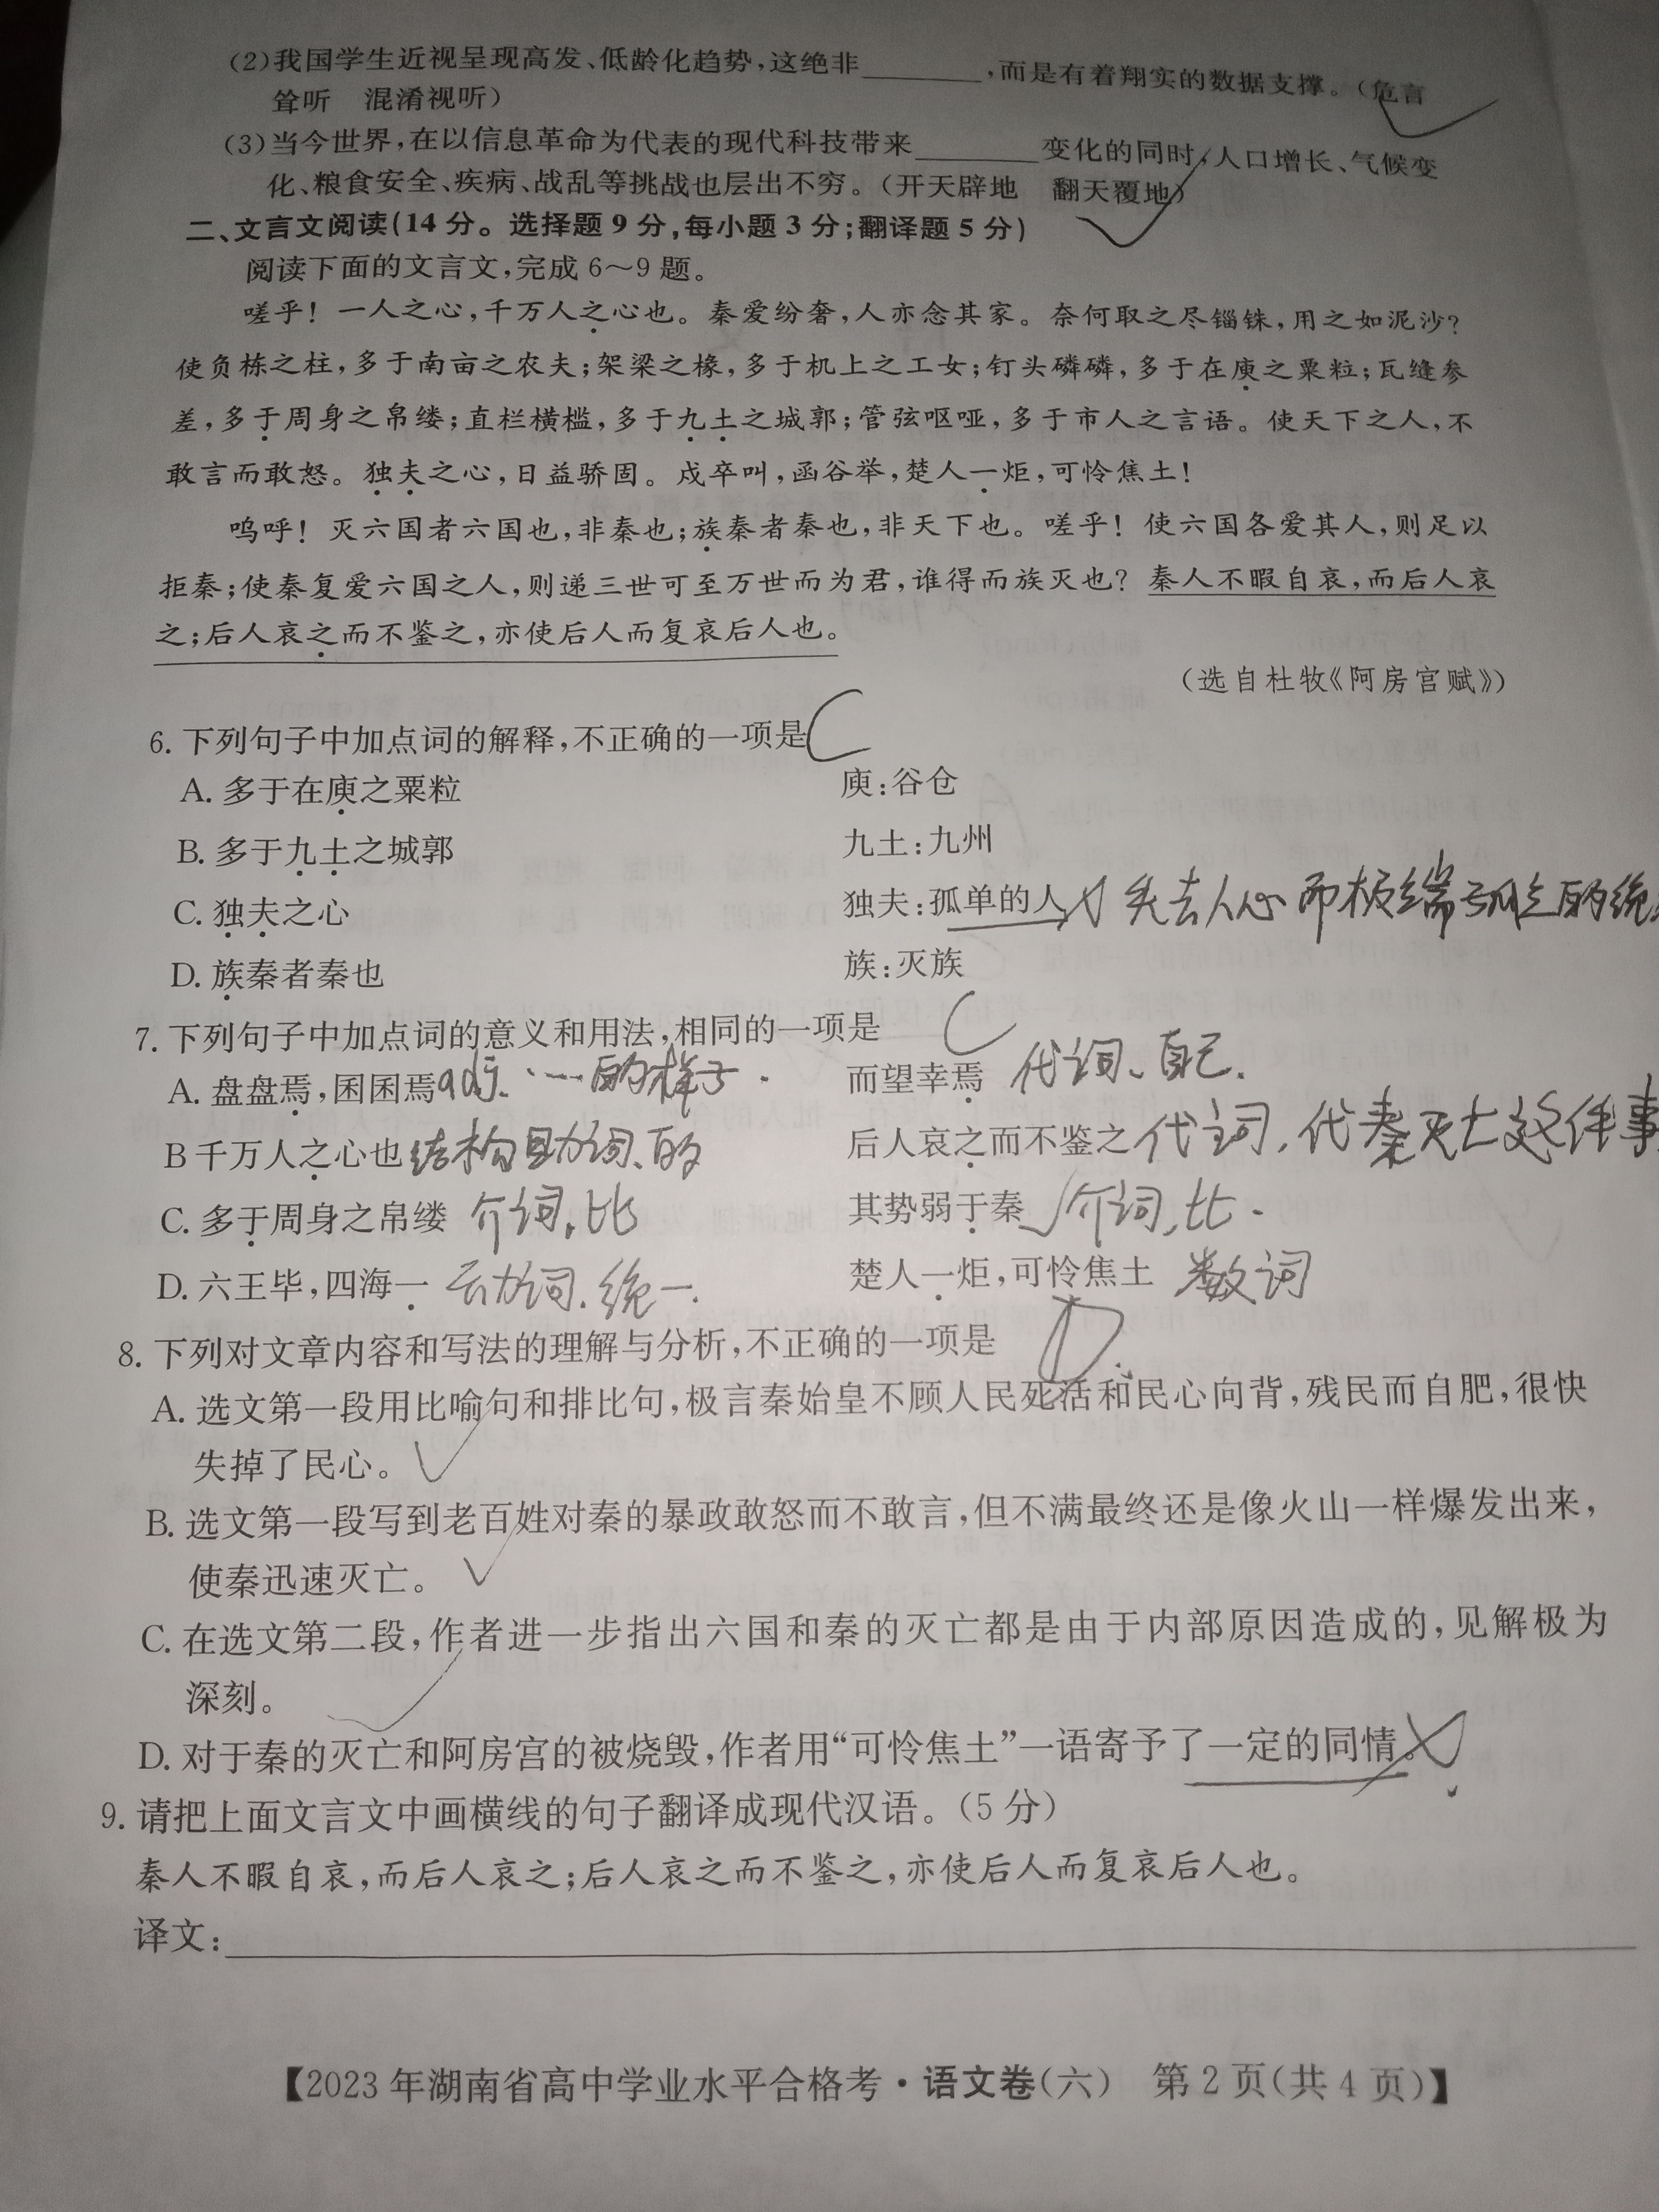 (2)我国学生近视呈现高发、低龄化趋势,这绝非________,而是有着翔实的数据支撑。(危言
耸听 混淆视听)
(3)当今世界,在以信息革命为代表的现代科技带来________变化的同时,人口增长、气候变
化、粮食安全、疾病、战乱等挑战也层出不穷。(开天辟地 翻天覆地)
二、文言文阅读(14分。选择题9分,每小题3分;翻译题5分)
阅读下面的文言文,完成6~9题。
嗟乎!一人之心,千万人之心也。秦爱纷奢,人亦念其家。奈何取之尽锱铢,用之如泥沙?
使负栋之柱,多于南亩之农夫;架梁之椽,多于机上之工女;钉头磷磷,多于在庾之粟粒;瓦缝参
差,多于周身之帛缕;直栏横槛,多于九土之城郭;管弦呕哑,多于市人之言语。使天下之人,不
敢言而敢怒。独夫之心,日益骄固。戍卒叫,函谷举,楚人一炬,可怜焦土!
呜呼!灭六国者六国也,非秦也;族秦者秦也,非天下也。嗟乎!使六国各爱其人,则足以
拒秦;使秦复爱六国之人,则递三世可至万世而为君,谁得而族灭也?秦人不暇自哀,而后人哀
之;后人哀之而不鉴之,亦使后人而复哀后人也。
(选自杜牧《阿房宫赋》)
6. 下列句子中加点词的解释,不正确的一项是 C
A. 多于在庾之粟粒 庾:谷仓
B. 多于九土之城郭 九土:九州
C. 独夫之心 独夫:孤单的人 失去人心而极端孤立的统
D. 族秦者秦也 族:灭族
7. 下列句子中加点词的意义和用法,相同的一项是 C
A. 盘盘焉,囷囷焉 adj. ……的样子. 而望幸焉 代词、自己.
B 千万人之心也 结构助词、的 后人哀之而不鉴之 代词,代秦灭亡这件事
C. 多于周身之帛缕 介词,比 其势弱于秦 介词,比.
D. 六王毕,四海一 动词.统一. 楚人一炬,可怜焦土 数词
8. 下列对文章内容和写法的理解与分析,不正确的一项是 D.
A. 选文第一段用比喻句和排比句,极言秦始皇不顾人民死活和民心向背,残民而自肥,很快
失掉了民心。
B. 选文第一段写到老百姓对秦的暴政敢怒而不敢言,但不满最终还是像火山一样爆发出来,
使秦迅速灭亡。
C. 在选文第二段,作者进一步指出六国和秦的灭亡都是由于内部原因造成的,见解极为
深刻。
D. 对于秦的灭亡和阿房宫的被烧毁,作者用“可怜焦土”一语寄予了一定的同情。
9. 请把上面文言文中画横线的句子翻译成现代汉语。(5分)
秦人不暇自哀,而后人哀之;后人哀之而不鉴之,亦使后人而复哀后人也。
译文:
【2023年湖南省高中学业水平合格考·语文卷(六) 第2页(共4页)】